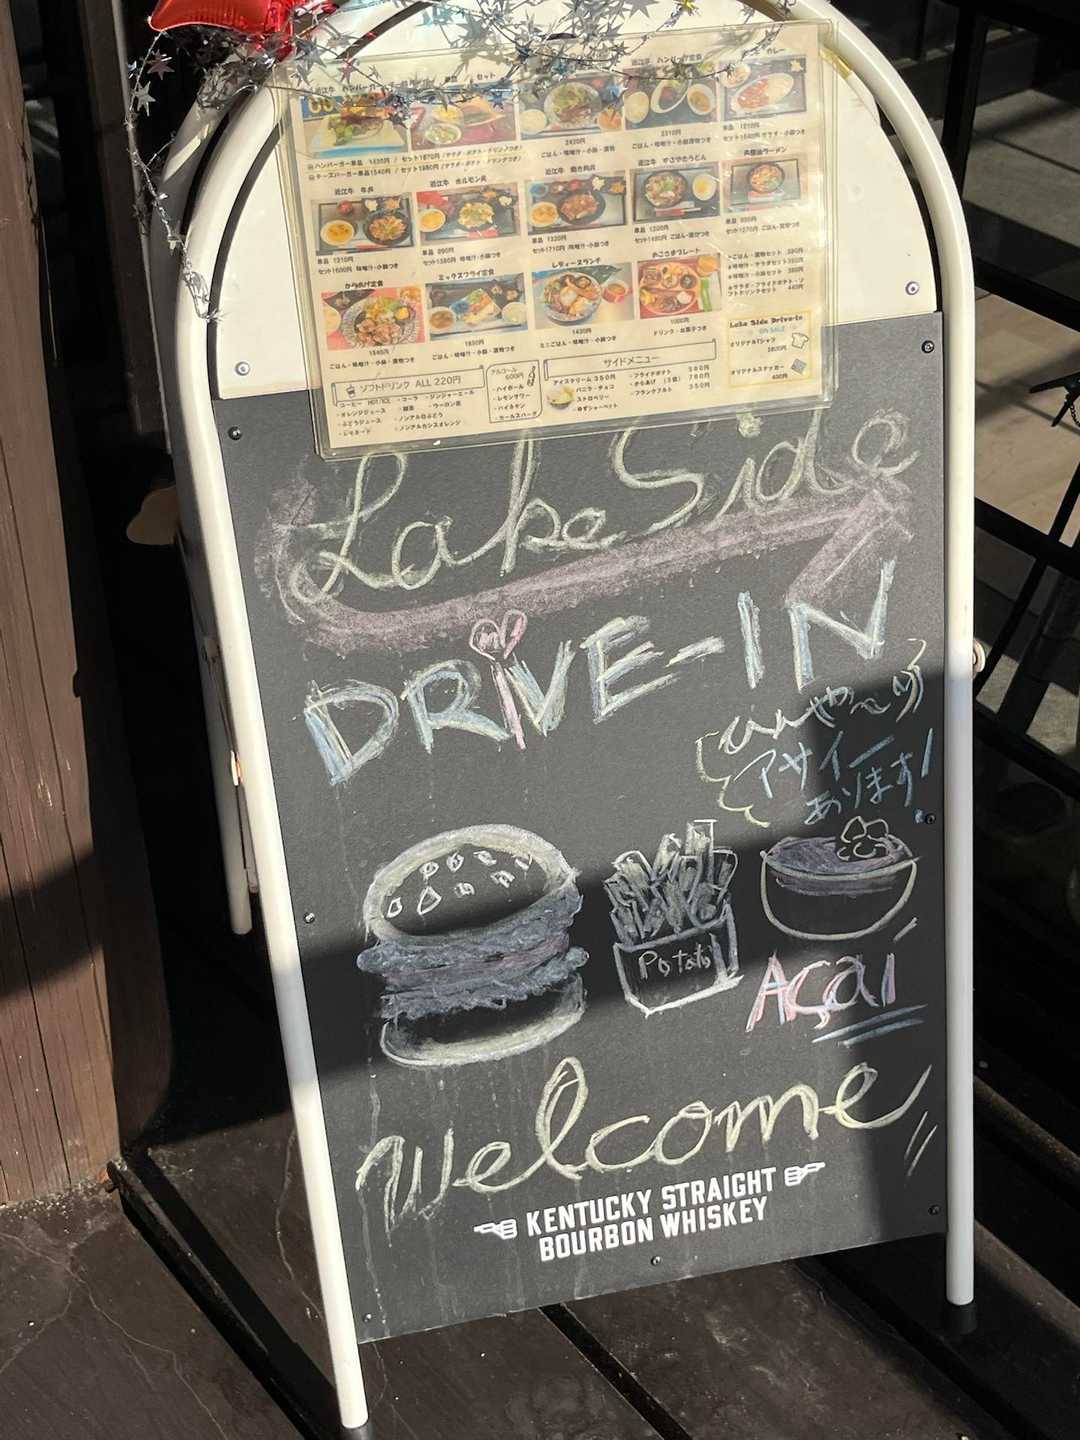 近江牛 ハンバーガー
セット
近江牛 ハンバーグ定食
カレー
ハンバーガー単品
セット1870円 (サラダ・ポテト・ドリンクつき)
チーズバーガー単品1540円 / セット1980円 (サラダ・ポテト・ドリンクつき)
2420円
ごはん・味噌汁・小鉢・漬物
2310円
ごはん・味噌汁・小鉢漬物つき
単品 1210円
近江牛 牛丼
近江牛 ホルモン丼
近江牛 焼き肉丼
近江牛 すきやきうどん
単品 1210円
セット1600円 味噌汁・小鉢つき
単品 990円
セット1380円 味噌汁・小鉢つき
単品 1320円
セット1710円 味噌汁・小鉢つき
単品 1200円
セット1270円 ごはん・漬物つき
からあげ定食
ミックスフライ定食
レディースランチ
おこさまプレート
1540円
ごはん・味噌汁・小鉢・漬物つき
1650円
ごはん・味噌汁・小鉢・漬物つき
1430円
ミニごはん・味噌汁・小鉢つき
1000円
ドリンク・お菓子つき
ソフトドリンク ALL 220円
・コーヒー HOT/ICE
・コーラ
・ジンジャーエール
・オレンジジュース
・ウーロン茶
・ぶどうジュース
・ノンアルカシスオレンジ
アルコール
600円
・ハイボール
・レモンサワー
サイドメニュー
アイスクリーム 350円
・バニラ・チョコ
・ストロベリー
・ゆずシャーベット
・フライドポテト 500円
・からあげ (5個) 700円
・フランクフルト 350円
Lake Side Drive-in
ON SALE
オリジナルTシャツ
オリジナルステッカー
Lake Side
DRiVE-IN
ひんや〜り
アサイー
あります!
Potato
AÇAI
Welcome
KENTUCKY STRAIGHT
BOURBON WHISKEY